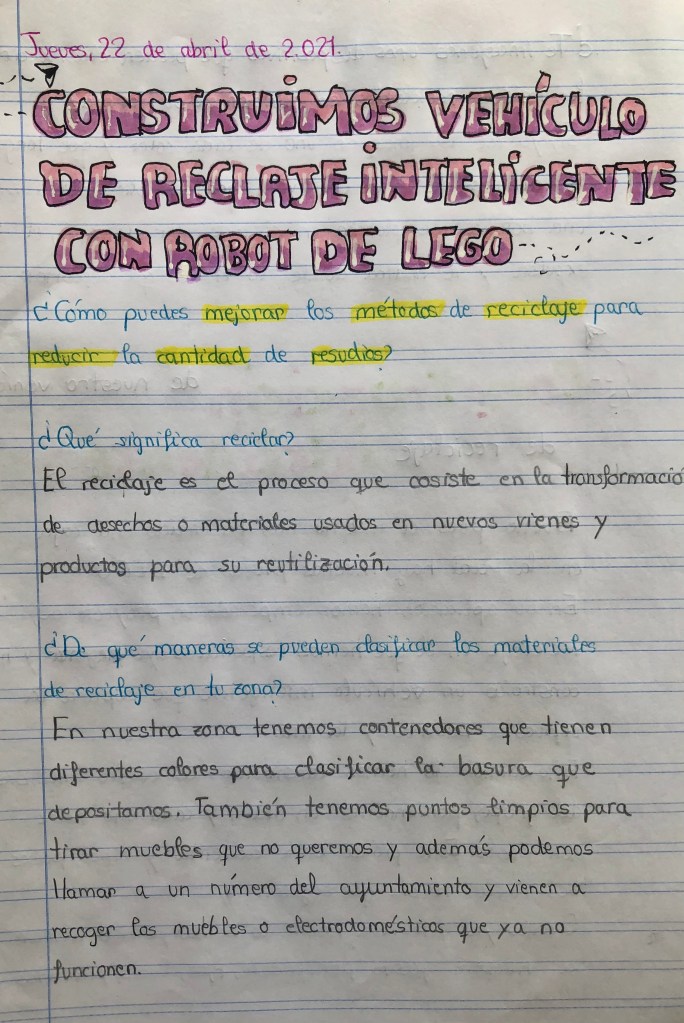 Jueves, 22 de abril de 2021.
CONSTRUIMOS VEHÍCULO
DE RECLAJE INTELIGENTE
CON ROBOT DE LEGO
¿Cómo puedes mejorar los métodos de reciclaje para
reducir la cantidad de resudios?
¿Qué significa reciclar?
El reciclaje es el proceso que cosiste en la transformacio
de desechos o materiales usados en nuevos vienes y
productos para su reutilización.
¿De qué maneras se pueden clasificar los materiales
de reciclaje en tu zona?
En nuestra zona tenemos contenedores que tienen
diferentes colores para clasificar la basura que
depositamos. También tenemos puntos limpios para
tirar muebles que no queremos y además podemos
llamar a un número del ayuntamiento y vienen a
recoger los muebles o electrodomésticos que ya no
funcionen.